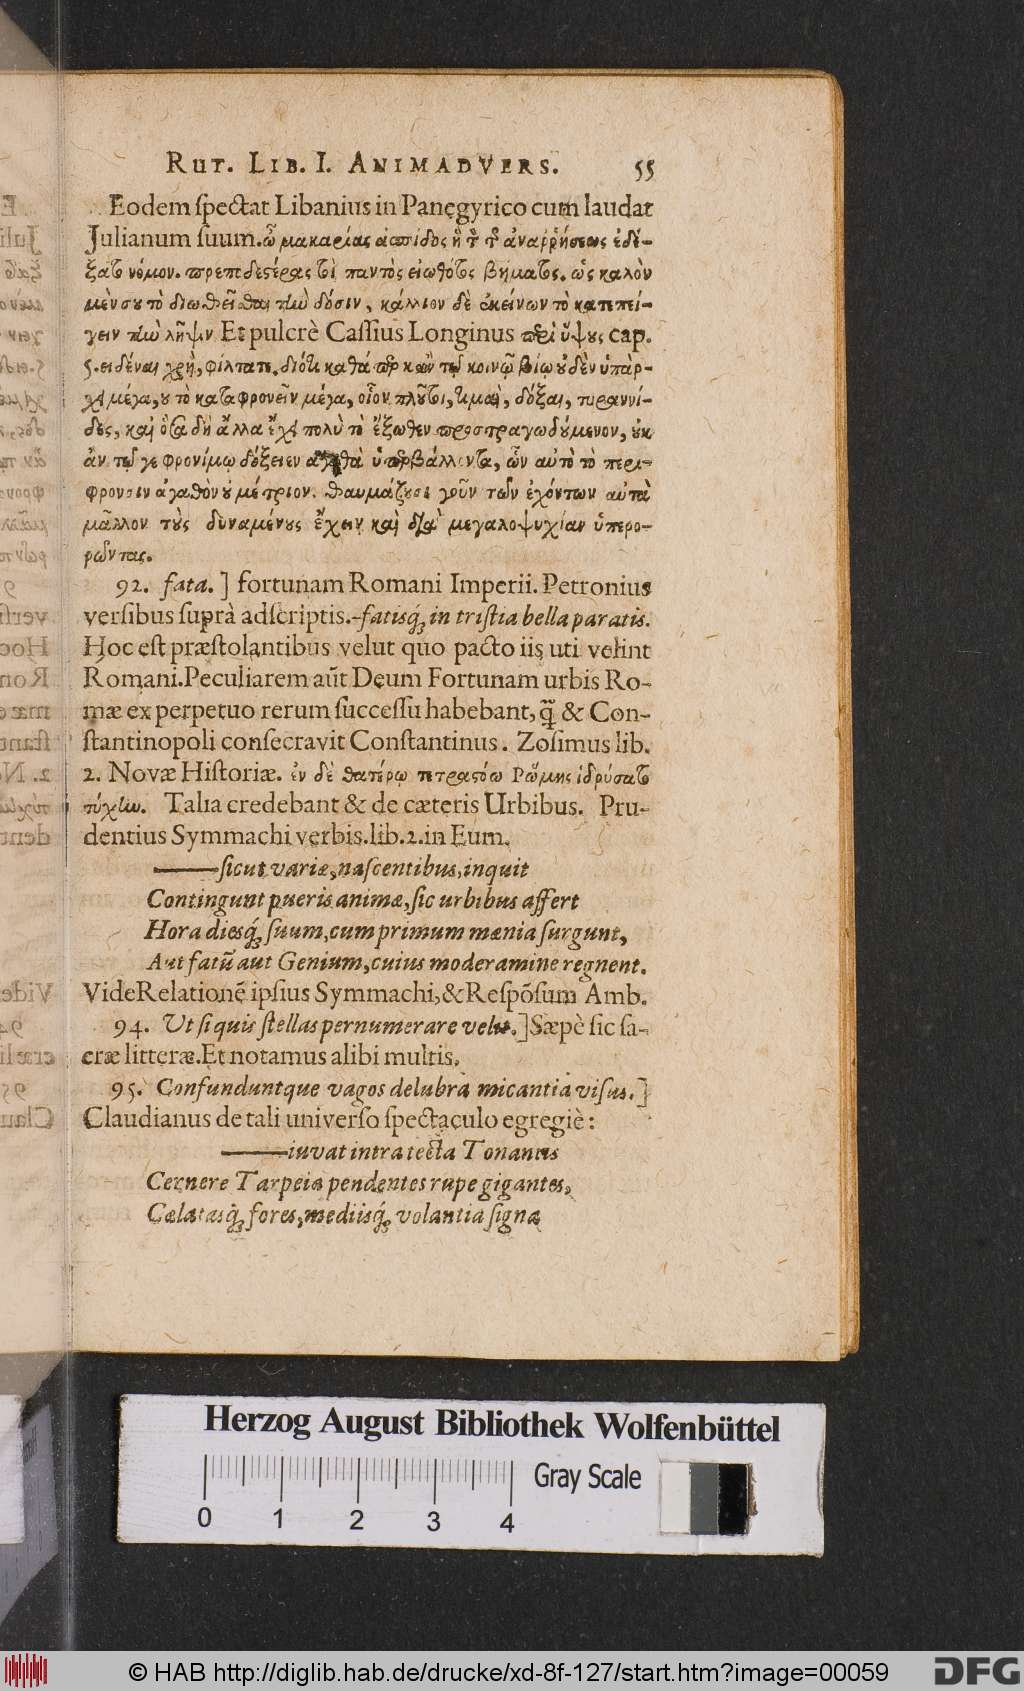 RUT. LIB. I. ANIMADVERS. 55
Eodem spectat Libanius in Panegyrico cum laudat
Julianum suum. ὦ μακαρίας ἀσπίδος ἣ τ τ ἀναῤῥήσεως ἐδέ-
ξατο νόμον. πρεπωδεςέρας τοῦ παντὸς εἰωθότος βήματος. ὡς καλὸν
μὲν σου τὸ διωθεῖσθαι τὴν δόσιν, κάλλιον δὲ ἐκείνων τὸ κατεπεί-
γειν τὴν λῆψιν Et pulcrè Cassius Longinus περὶ ὕψους cap.
5. εἰδέναι χρή, φίλτατε, διότι καθάπερ κἀν τῷ κοινῷ βίῳ οὐδὲν ὑπάρ-
χει μέγα, οὗ τὸ καταφρονεῖν μέγα, οἷον πλοῦτοι, τιμαὶ, δόξαι, τυραννί-
δες, καὶ ὅσα δὴ ἄλλα ἔχει πολὺ τὸ ἔξωθεν προστραγωδούμενον, οὐκ
ἂν τῷ γε φρονίμῳ δόξειεν ἀγαθὰ ὑπερβάλλοντα, ὧν αὐτὸ τὸ περι-
φρονεῖν ἀγαθὸν οὐ μέτριον. θαυμάζουσι γοῦν τῶν ἐχόντων αὐτὰ
μᾶλλον τοὺς δυναμένους ἔχειν καὶ διὰ μεγαλοψυχίαν ὑπερο-
ρῶντας.
92. fata.] fortunam Romani Imperii. Petronius
versibus suprà adscriptis.-fatisq́; in tristia bella paratis.
Hoc est præstolantibus velut quo pacto iis uti velint
Romani. Peculiarem aūt Deum Fortunam urbis Ro-
mæ ex perpetuo rerum successu habebant, q̃ & Con-
stantinopoli consecravit Constantinus. Zosimus lib.
2. Novæ Historiæ. ἐν δὲ θατέρῳ πετραςόω Ρώμης ἱδρύσατο
τύχην. Talia credebant & de cæteris Urbibus. Pru-
dentius Symmachi verbis. lib. 2. in Eum.
—— sicut variæ, nascentibus, inquit
Contingunt pueris animæ, sic urbibus affert
Hora diesq́; suum, cum primum mœnia surgunt,
Aut fatū aut Genium, cuius moderamine regnent.
Vide Relationē ipsius Symmachi, & Respōsum Amb.
94. Ut si quis stellas pernumerare velit.] Sæpè sic sa-
cræ litteræ. Et notamus alibi multis.
95. Confunduntque vagos delubra micantia visus.]
Claudianus de tali universo spectaculo egregiè:
—— iuvat intra tecta Tonantis
Cernere Tarpeia pendentes rupe gigantes,
Cælatasq́; fores, mediisq́; volantia signa
Herzog August Bibliothek Wolfenbüttel
0 1 2 3 4
Gray Scale
© HAB http://diglib.hab.de/drucke/xd-8f-127/start.htm?image=00059
DFG